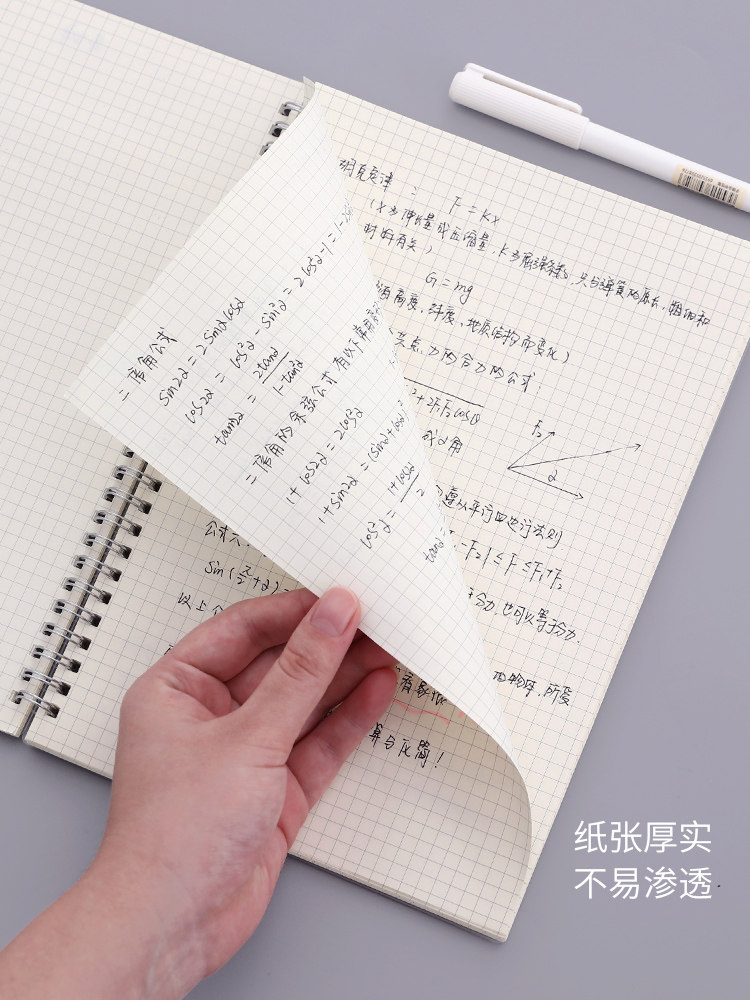 胡克定律: F=kx
(x为伸长量或压缩量,k为倔强系数,只与弹簧的原长、粗细和
材料有关)
G=mg
高度,纬度,地质结构而变化)
共点力的合力的公式
²+2F₁F₂cosθ
成α角
F₂
α
遵从平行四边形法则
-F₂|≤F≤F₁+F₂
分力,也可以等于分力.
物体,所受
算与化简!
二倍角公式
sin2α=2sinαcosα
cos2α=cos²α-sin²α=2cos²α-1=1-2sin
tan2α=2tanα/1-tan²α
二倍角的余弦公式有以下
1+cos2α=2cos²α
1+sin2α=(sinα+cosα)²
cos²α=1+cos2α/2
tanα=
公式六:
sin(π/2+α)=
以上
纸张厚实
不易渗透